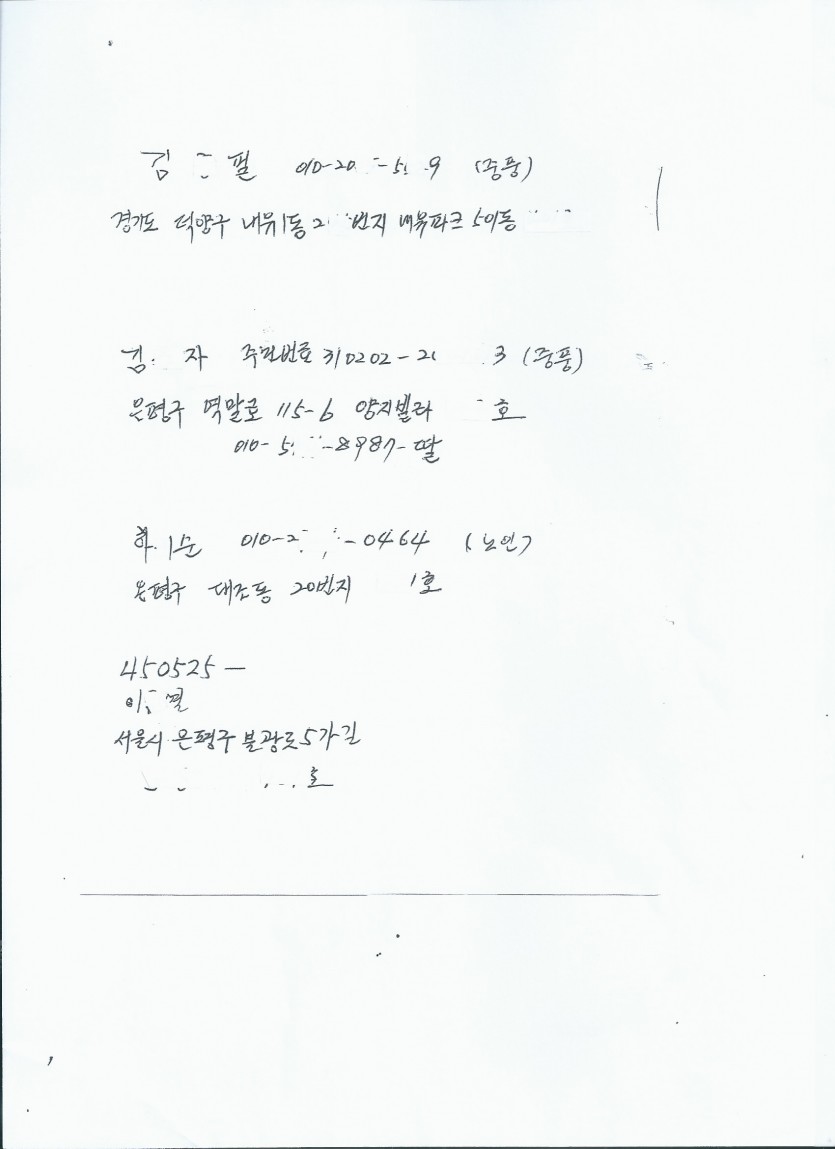 김 필 010-20 -5 9 (중풍)
경기도 덕양구 내유1동 2 번지 내유파크 501동
김 자 주민번호 310202-21 3 (중풍)
은평구 역말로 115-6 양지빌라 호
010-5 -8987-딸
하 순 010-2 -0464 (노인)
은평구 대조동 20번지 1호
450525-
이 필
서울시 은평구 불광로5가길
호